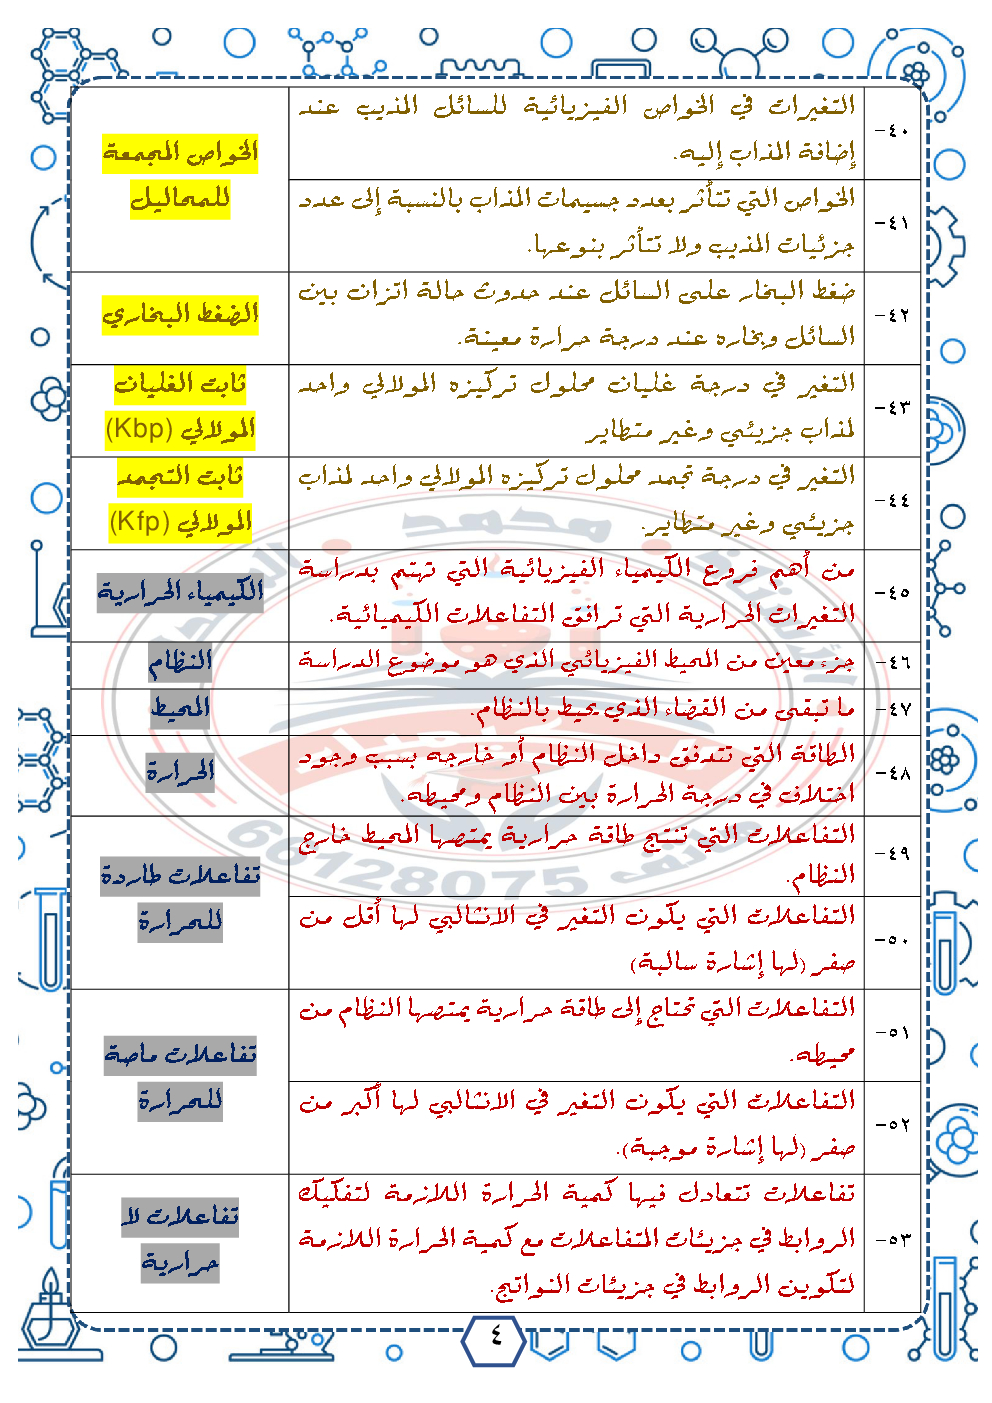 ٤٠-
التغيرات في الخواص الفيزيائية للسائل المذيب عند
إضافة المذاب إليه.
الخواص المجمعة
للمحاليل
٤١-
الخواص التي تتأثر بعدد جسيمات المذاب بالنسبة إلى عدد
جزئيات المذيب ولا تتأثر بنوعها.
٤٢-
ضغط البخار على السائل عند حدوث حالة اتزان بين
السائل وبخاره عند درجة حرارة معينة.
الضغط البخاري
٤٣-
التغير في درجة غليان محلول تركيزه المولالي واحد
لمذاب جزيئي وغير متطاير
ثابت الغليان
المولالي (Kbp)
٤٤-
التغير في درجة تجمد محلول تركيزه المولالي واحد لمذاب
جزيئي وغير متطاير.
ثابت التجمد
المولالي (Kfp)
٤٥-
من أهم فروع الكيمياء الفيزيائية التي تهتم بدراسة
التغيرات الحرارية التي ترافق التفاعلات الكيميائية.
الكيمياء الحرارية
٤٦-
جزء معين من المحيط الفيزيائي الذي هو موضوع الدراسة
النظام
٤٧-
ما تبقى من الفضاء الذي يحيط بالنظام.
المحيط
٤٨-
الطاقة التي تتدفق داخل النظام أو خارجه بسبب وجود
اختلاف في درجة الحرارة بين النظام ومحيطه.
الحرارة
٤٩-
التفاعلات التي تنتج طاقة حرارية يمتصها المحيط خارج
النظام.
تفاعلات طاردة
للحرارة
٥٠-
التفاعلات التي يكون التغير في الانثالبي لها أقل من
صفر (لها إشارة سالبة)
٥١-
التفاعلات التي تحتاج إلى طاقة حرارية يمتصها النظام من
محيطه.
تفاعلات ماصة
للحرارة
٥٢-
التفاعلات التي يكون التغير في الانثالبي لها أكبر من
صفر (لها إشارة موجبة).
٥٣-
تفاعلات تتعادل فيها كمية الحرارة اللازمة لتفكيك
الروابط في جزيئات المتفاعلات مع كمية الحرارة اللازمة
لتكوين الروابط في جزيئات النواتج.
تفاعلات لا
حرارية
محمد
66128075
٤